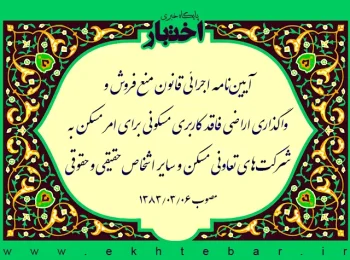 پایگاه خبری
اختبار
آیین‌نامه اجرائی قانون منع فروش و
واگذاری اراضی فاقد کاربری مسکونی برای امر مسکن به
شرکت‌های تعاونی مسکن و سایر اشخاص حقیقی و حقوقی
مصوب ۱۳۸۳/۰۳/۰۶
www.ekhtebar.ir